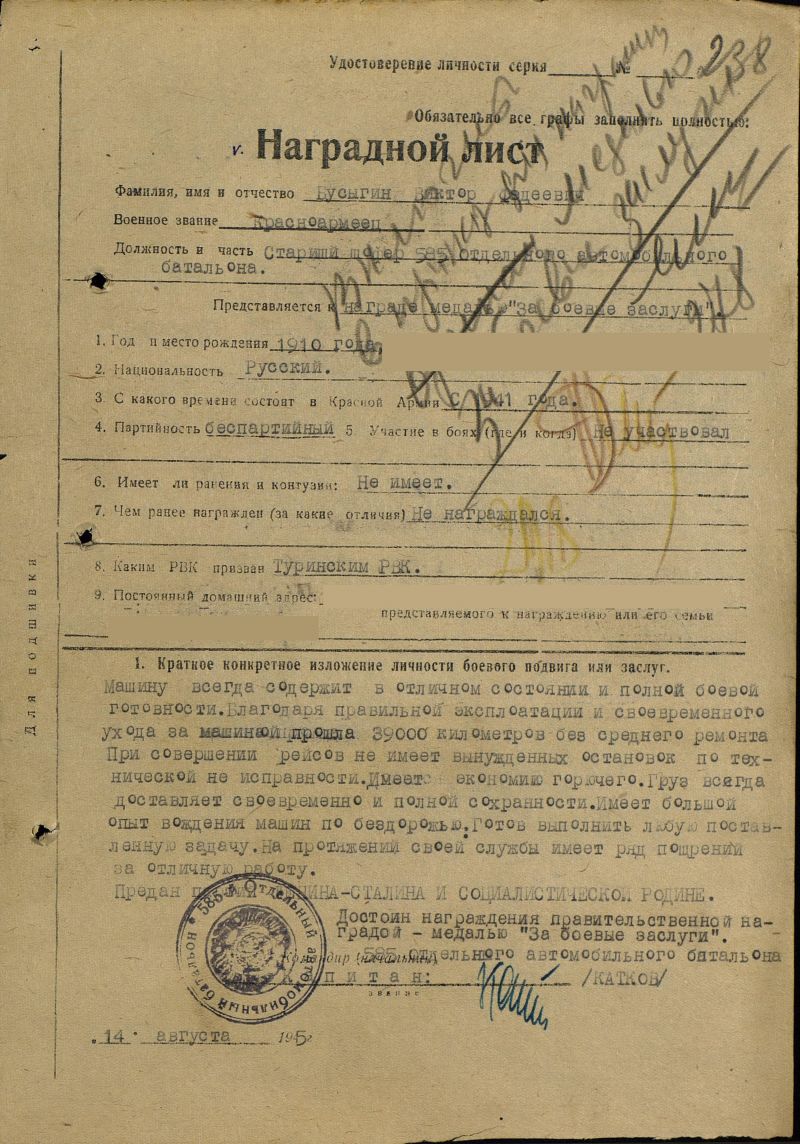 Удостоверение личности серия № 238
Обязательно все графы заполнить полностью:
v. Наградной лист
Фамилия, имя и отчество Бусыгин Виктор Фадеевич
Военное звание Красноармеец
Должность и часть Старший шофер 585 отдельного автомобильного
батальона.
Представляется к награде медалью "За боевые заслуги".
1. Год и место рождения 1910 года,
2. Национальность Русский.
3. С какого времени состоит в Красной Армии С 1941 года.
4. Партийность беспартийный 5. Участие в боях (где и когда) Не участвовал
6. Имеет ли ранения и контузии: Не имеет.
7. Чем ранее награжден (за какие отличия) Не награждался.
8. Каким РВК призван Туринским РВК.
9. Постоянный домашний адрес:
представляемого к награждению или его семьи
Для подшивки
1. Краткое конкретное изложение личности боевого подвига или заслуг.
Машину всегда содержит в отличном состоянии и полной боевой
готовности.Благодаря правильной эксплоатации и своевременного
ухода за машиной прошла 39000 километров без среднего ремонта
При совершении рейсов не имеет вынужденных остановок по тех-
нической не исправности.Имеет экономию горючего.Груз всегда
доставляет своевременно и полной сохранности.Имеет большой
опыт вождения машин по бездорожью.Готов выполнить любую постав-
ленную задачу.На протяжении своей службы имеет ряд пощрений
за отличную работу.
Предан ЛЕНИНА-СТАЛИНА И СОЦИАЛИСТИЧЕСКОЙ РОДИНЕ.
Достоин награждения правительственной на-
градой - медалью "За боевые заслуги".
Командир (начальник) 585 отдельного автомобильного батальона
К а п и т а н: /КАТКОВ/
звание
585-й Отдельный автомобильный батальон
"14" августа 1945г